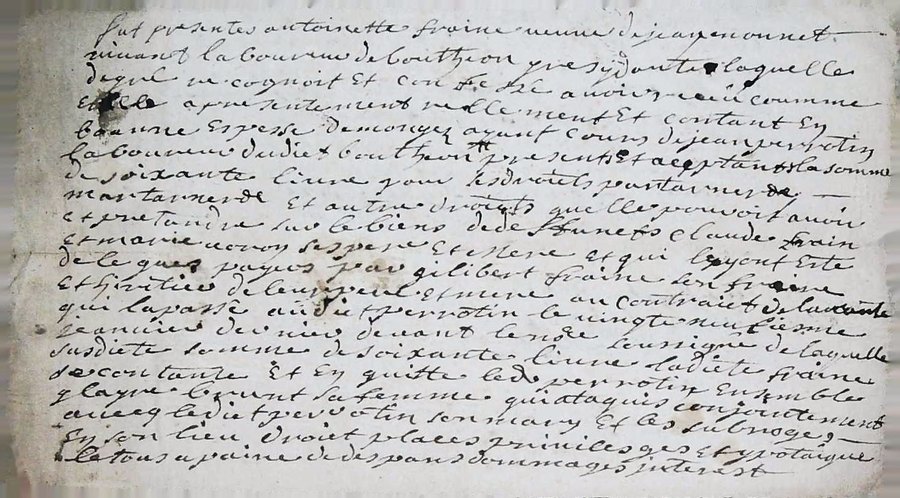 fut presentes antoinette fraine veuve de jean nonnet
vivant laboureur de boutheon presydante laquelle
de gre recognoit Et confesse avoir reçeu coumme
Et elle a presentement reellement Et contant En
bonnne Espesse de monoyez ayant cours de jean perrotin
laboureur dudict boutheon present Et aceptant la somme
de soixante livre pour les droits partarner de
martarner de Et autre droicts quelle pouvoit avoir
et pretandre sur le biens de deffunets Claude frain
Et marie ses pere Et Mere Et qui luy ont Este
delegues payers par gilibert fraine son fraire
Et heritie de leur pere et mere au contrait de la vante
qui la passé audict perrotin le vingte neufieme
jeanvier dernier devant le no.re soussigne de laquelle
susdicte somme de soixante livre ladicte fraine
se contante Et En quitte led perrotin Ensemble
brunt sa femme qui ataquis conjointement
avecq ledict perrotin son mary Et les subroge
En son lieu droict places privileges et ypotaique
le tous a paine de despans dommages interest